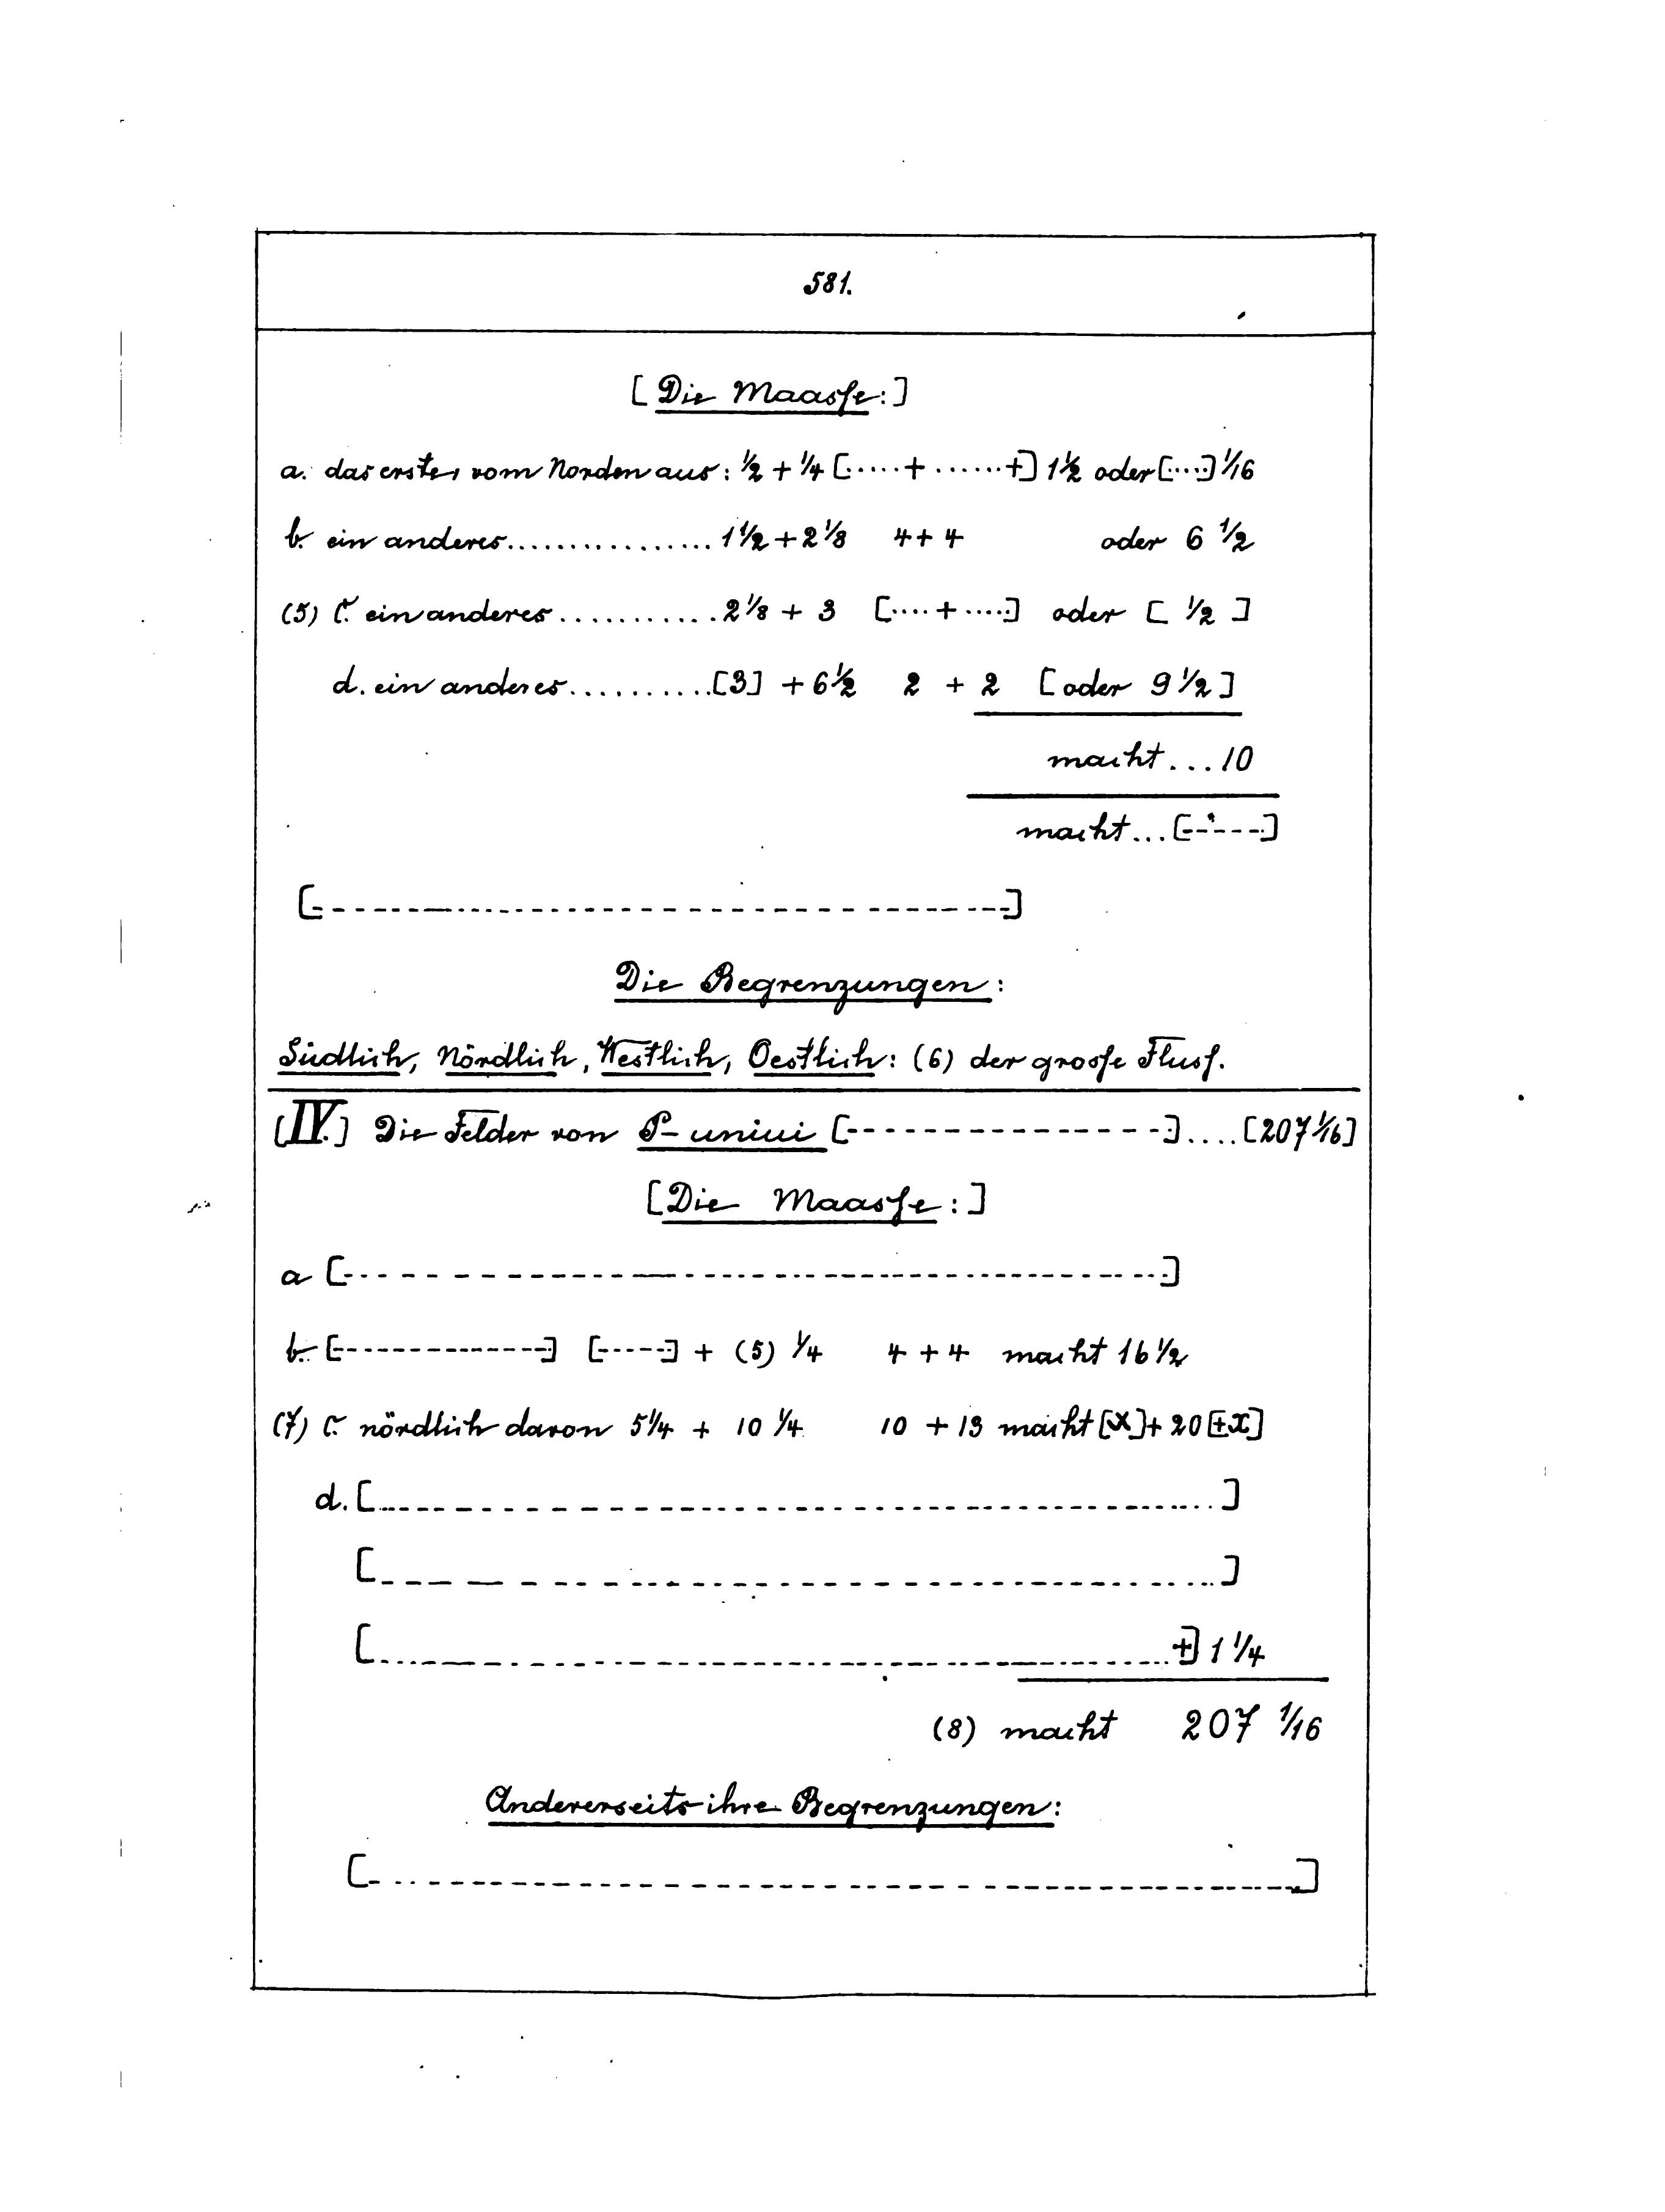 581.
[Die Maasse:]
a. das erste, vom Norden aus: ½ + ¼ [.....+......+] 1½ oder [....] 1/16
b. ein anderes................1½ + 2⅛ 4+4 oder 6 ½
(5) c. ein anderes...........2⅛ + 3 [....+....] oder [ ½ ]
d. ein anderes..........[3] + 6½ 2 + 2 [oder 9 ½]
macht...10
macht...[------]
[------------------------------]
Die Begrenzungen:
Südlich, Nördlich, Westlich, Oestlich: (6) der grosse Fluss.
[IV.] Die Felder von P-uniui [---------------]....[207 1/16]
[Die Maasse:]
a [------------------------------]
b. [---------------] [-----] + (5) ¼ 4 + 4 macht 16 ½
(7) c. nördlich davon 5¼ + 10 ¼ 10 + 13 macht [x] + 20 [+x]
d. [------------------------------]
[------------------------------]
[------------------------------+] 1 ¼
(8) macht 207 1/16
Andererseits ihre Begrenzungen:
[------------------------------]